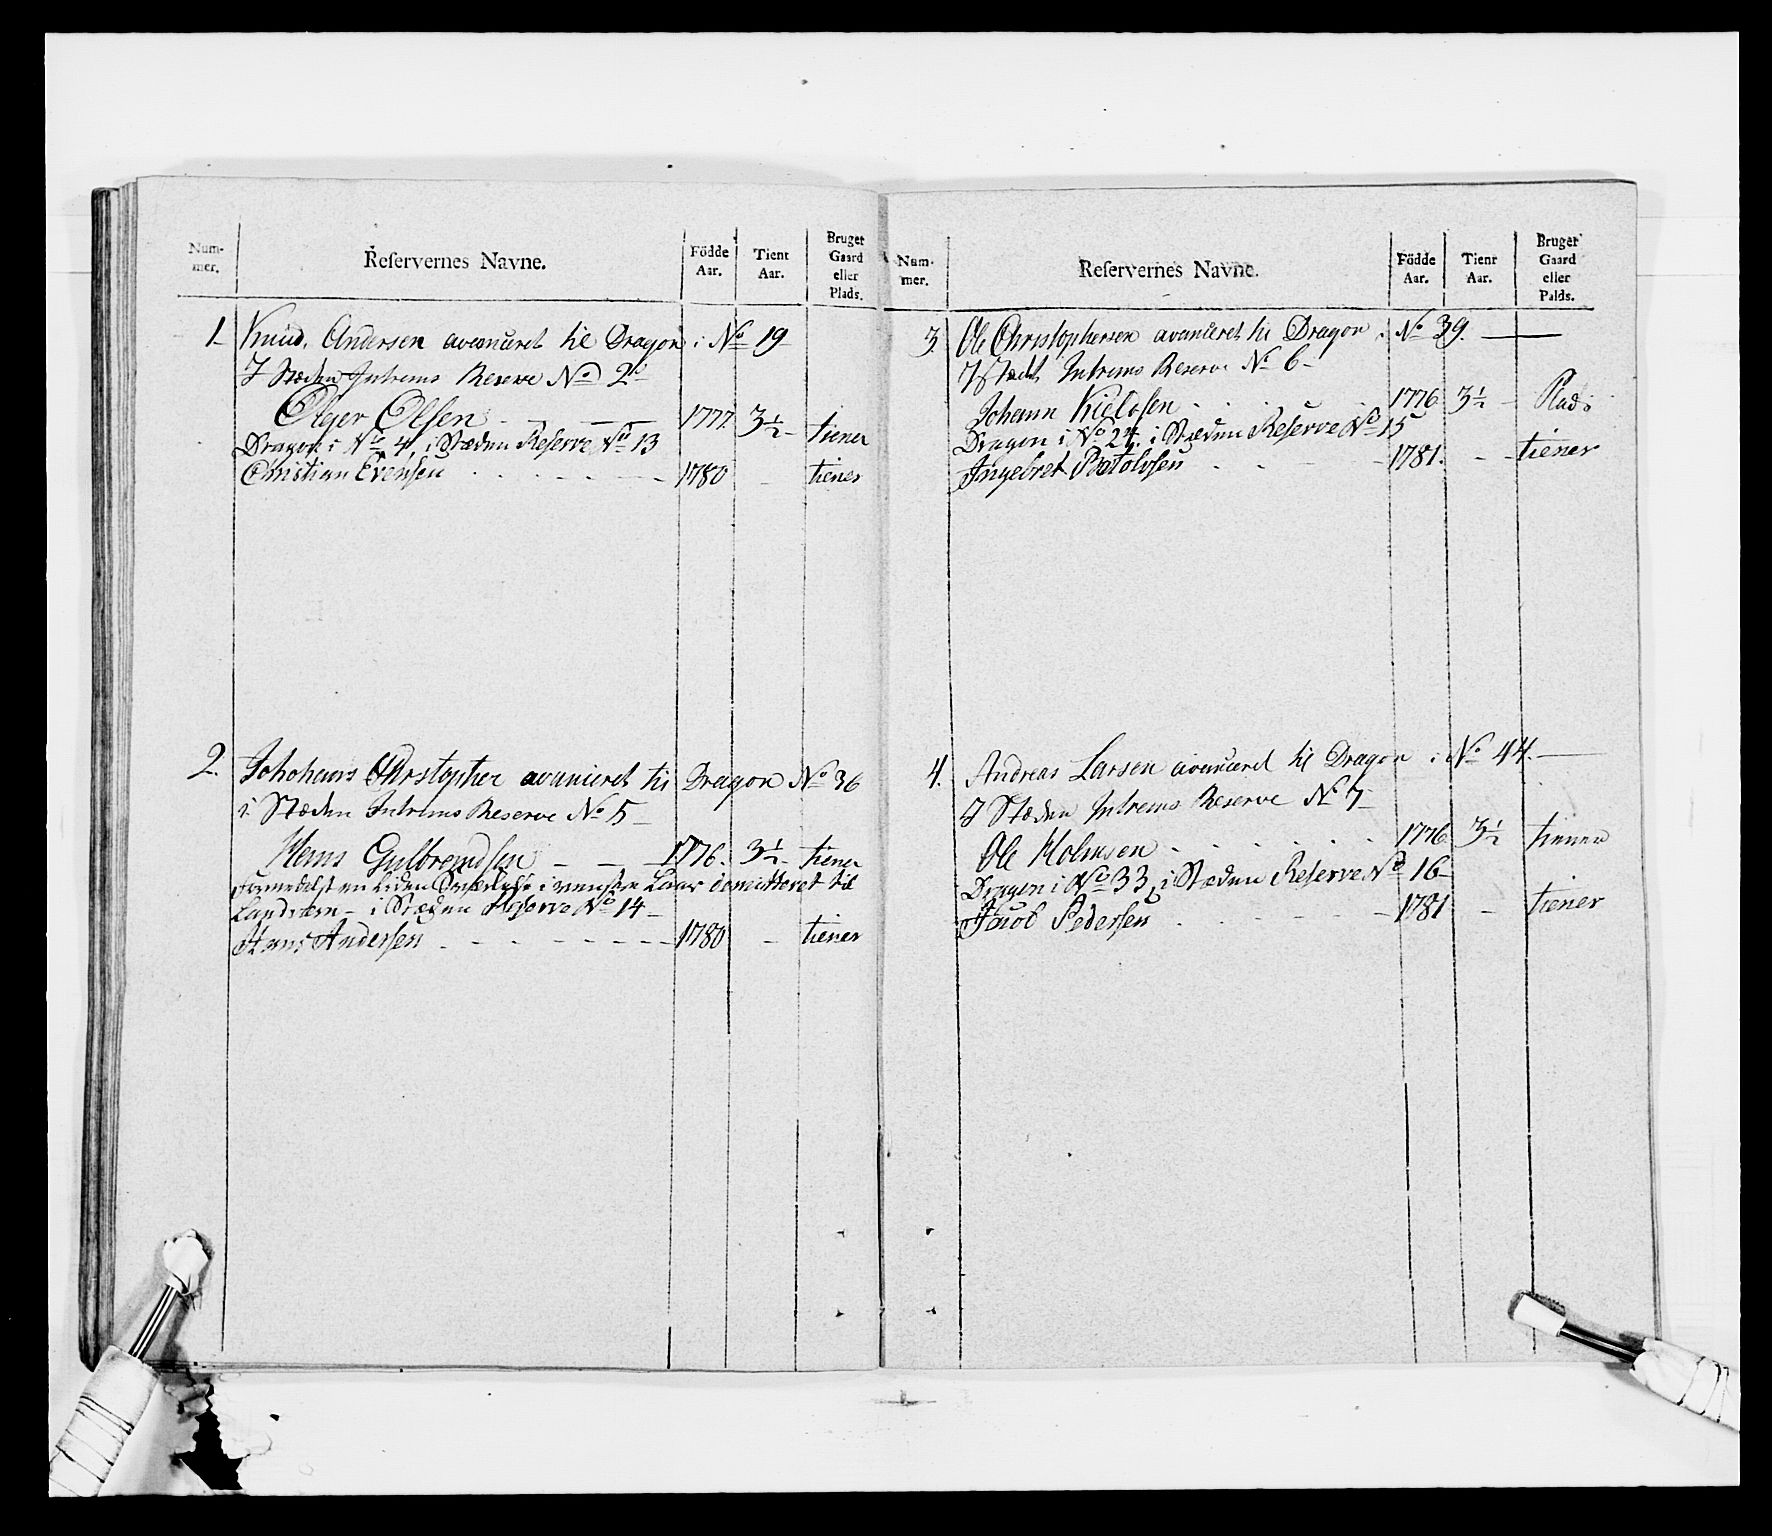 Num-
mer.
Reservernes Navne.
Födde
Aar.
Tient
Aar.
Bruger
Gaard
eller
Plads.
1. Knud Andersen avanceret til Dragon i No 19
I Stæden Intrems Reserve No 2
Olsen 1777. 3½ tiener
Dragon i No 4, i Stæden Reserve No 13
Christian Evensen 1780 - tiener
2. Johohans Christopher avanceret til Dragon No 36
i Stæden Intrems Reserve No 5
Hans Gulbrendsen 1776. 3½ tiener
formedelst en liden i venstre Laar demitteret til
Landværn - i Stæden Reserve No 14
Hans Andersen 1780 - tiener
Num-
mer.
Reservernes Navne.
Födde
Aar.
Tient
Aar.
Bruger
Gaard
eller
Palds.
3. Ole Christophersen avanceret til Dragon i No 39.
I Stædt Intrems Reserve No 6
Johann Kielosen 1776 3½ Plads
Dragon i No 24. i Stæden Reserve No 15
Ingebret 1781. - tiener
4. Andreas Larsen avanceret til Dragon i No 44.
I Stæden Intrems Reserve No 7
Ole Holmsen 1776 3½ tiener
Dragon i No 33, i Stæden Reserve No 16
Jacob Pedersen 1781 - tiener